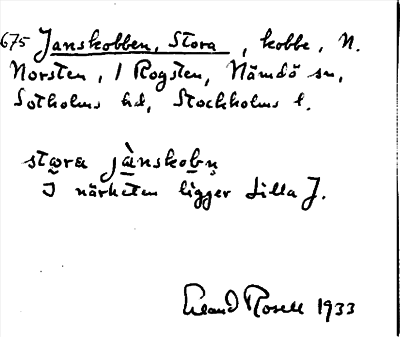 675 Janskobben, Stora, kobbe, N.
Norsten, / Rogsten, Nämdö sn,
Sotholms hd, Stockholms l.
stωra jànskobņ
I närheten ligger Lilla J.
Erland Rosell 1933